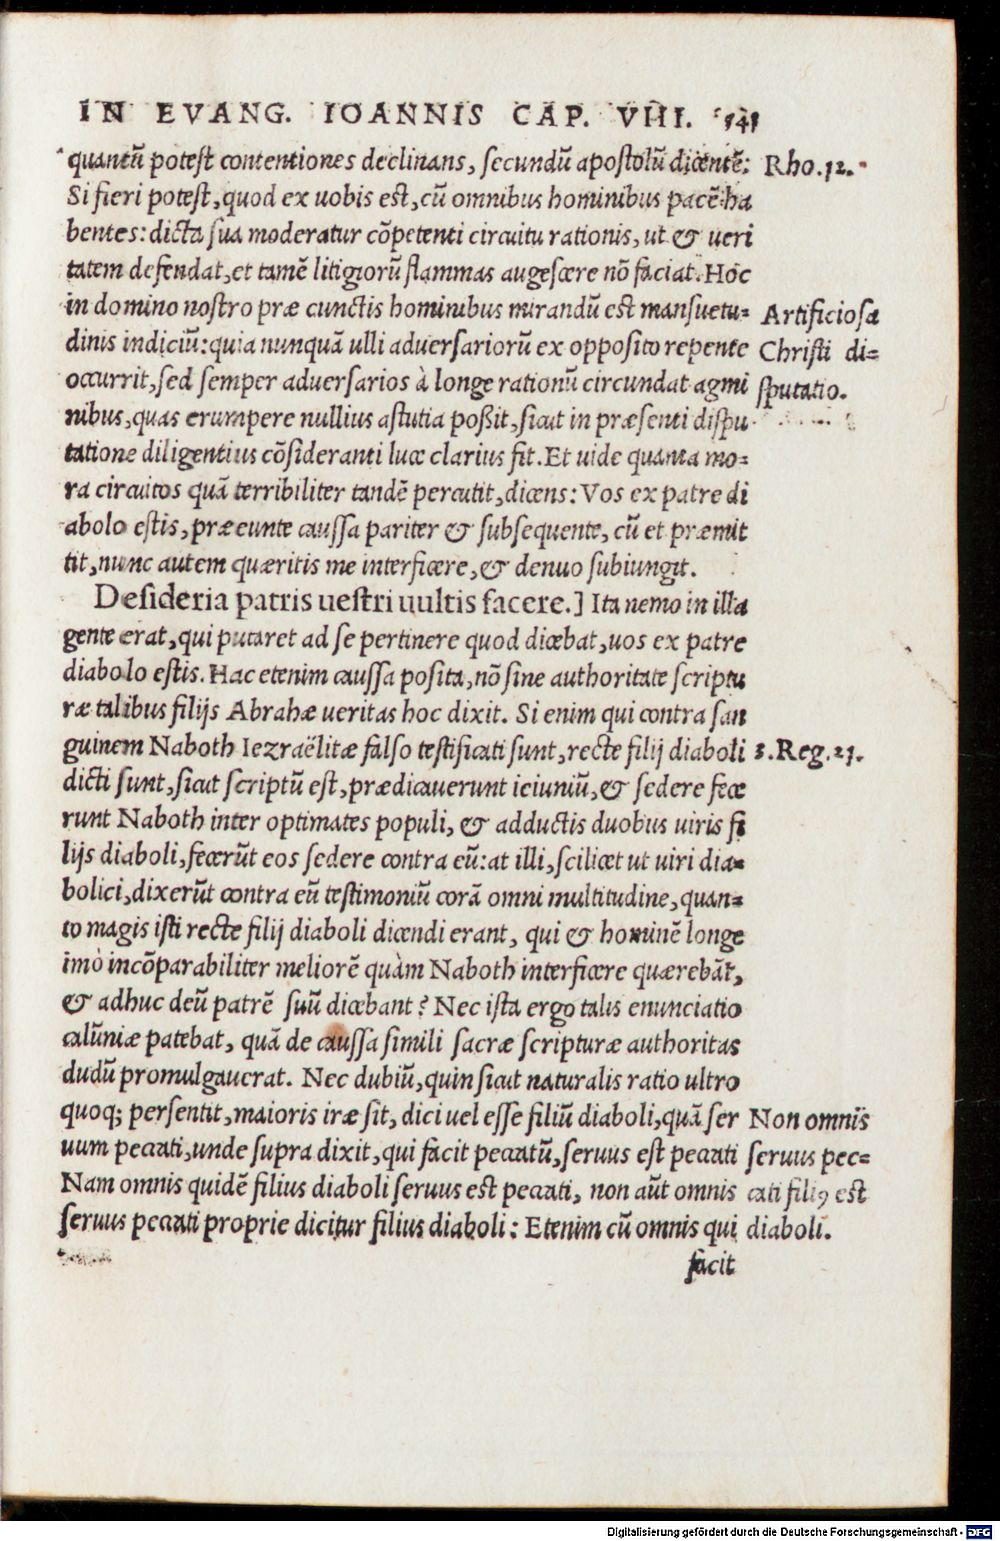 IN EVANG. IOANNIS CAP. VIII. 541
quantũ potest contentiones declinans, secundũ apostolũ dicentẽ: Rho.12.
Si fieri potest, quod ex uobis est, cũ omnibus hominibus pacẽ ha
bentes: dicta sua moderatur cõpetenti circuitu rationis, ut & ueri
tatem defendat, et tamẽ litigiorũ flammas augescere nõ faciat. Hoc
in domino nostro præ cunctis hominibus mirandũ est mansuetu= Artificiosa
dinis indiciũ: quia nunquã ulli aduersariorũ ex opposito repente Christi di=
occurrit, sed semper aduersarios à longe rationũ circundat agmi sputatio.
nibus, quas erumpere nullius astutia poßit, sicut in præsenti dispu
tatione diligentius cõsideranti luce clarius fit. Et uide quanta mo=
ra circuitos quã terribiliter tandẽ percutit, dicens: Vos ex patre di
abolo estis, præeunte caussa pariter & subsequente, cũ et præmit
tit, nunc autem quæritis me interficere, & denuo subiungit.
Desideria patris uestri uultis facere.] Ita nemo in illa
gente erat, qui putaret ad se pertinere quod dicebat, uos ex patre
diabolo estis. Hac etenim caussa posita, nõ sine authoritate scriptu
ræ talibus filijs Abrahæ ueritas hoc dixit. Si enim qui contra san
guinem Naboth Iezraëlitæ falso testificati sunt, recte filij diaboli 3.Reg.21.
dicti sunt, sicut scriptũ est, prædicauerunt ieiuniũ, & sedere fece
runt Naboth inter optimates populi, & adductis duobus uiris fi
lijs diaboli, fecerũt eos sedere contra eũ: at illi, scilicet ut uiri dia=
bolici, dixerũt contra eũ testimoniũ corã omni multitudine, quan=
to magis isti recte filij diaboli dicendi erant, qui & hominẽ longe
imò incõparabiliter meliorẽ quàm Naboth interficere quærebãt,
& adhuc deũ patrẽ suũ dicebant? Nec ista ergo talis enunciatio
calũniæ patebat, quã de caussa simili sacræ scripturæ authoritas
dudũ promulgauerat. Nec dubiũ, quin sicut naturalis ratio ultro
quoq; persentit, maioris iræ sit, dici uel esse filiũ diaboli, quã ser Non omnis
uum peccati, unde supra dixit, qui facit peccatũ, seruus est peccati seruus pec=
Nam omnis quidẽ filius diaboli seruus est peccati, non aũt omnis cati filiꝰ est
seruus peccati proprie dicitur filius diaboli: Etenim cũ omnis qui diaboli.
facit
Digitalisierung gefördert durch die Deutsche Forschungsgemeinschaft - DFG